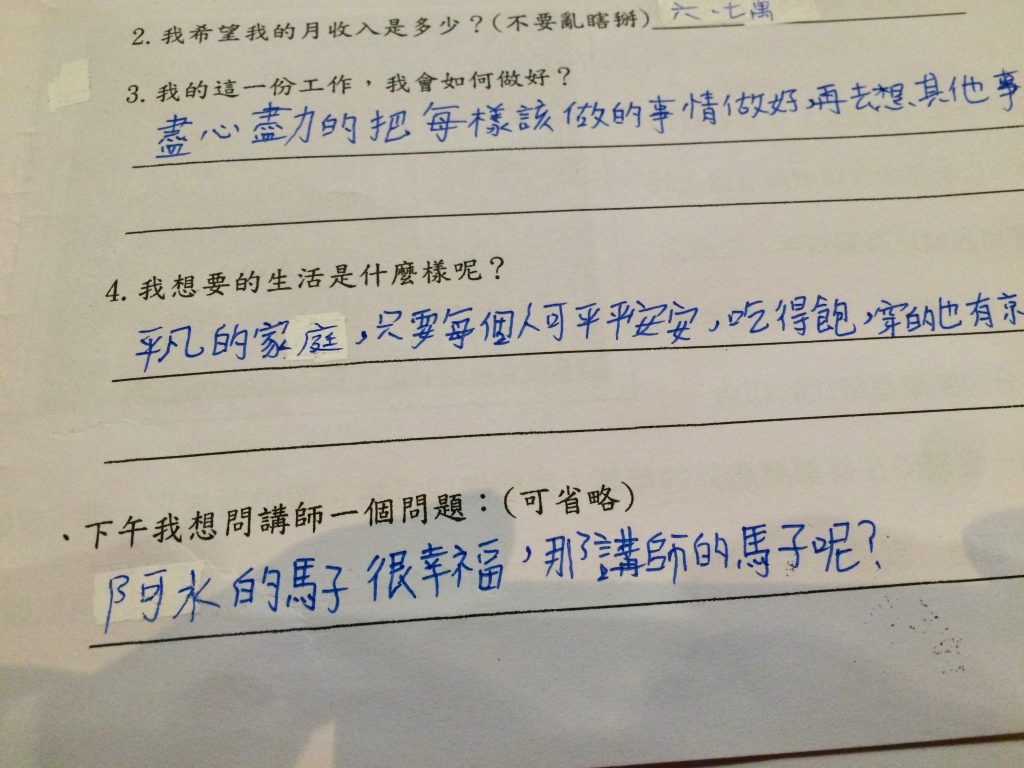 2. 我希望我的月收入是多少？(不要亂瞎掰) 六、七萬
3. 我的這一份工作，我會如何做好？
盡心盡力的把每樣該做的事情做好，再去想其他事
4. 我想要的生活是什麼樣呢？
平凡的家庭，只要每個人可平平安安，吃得飽，穿的也有
、下午我想問講師一個問題：(可省略)
阿水的馬子很幸福，那講師的馬子呢？